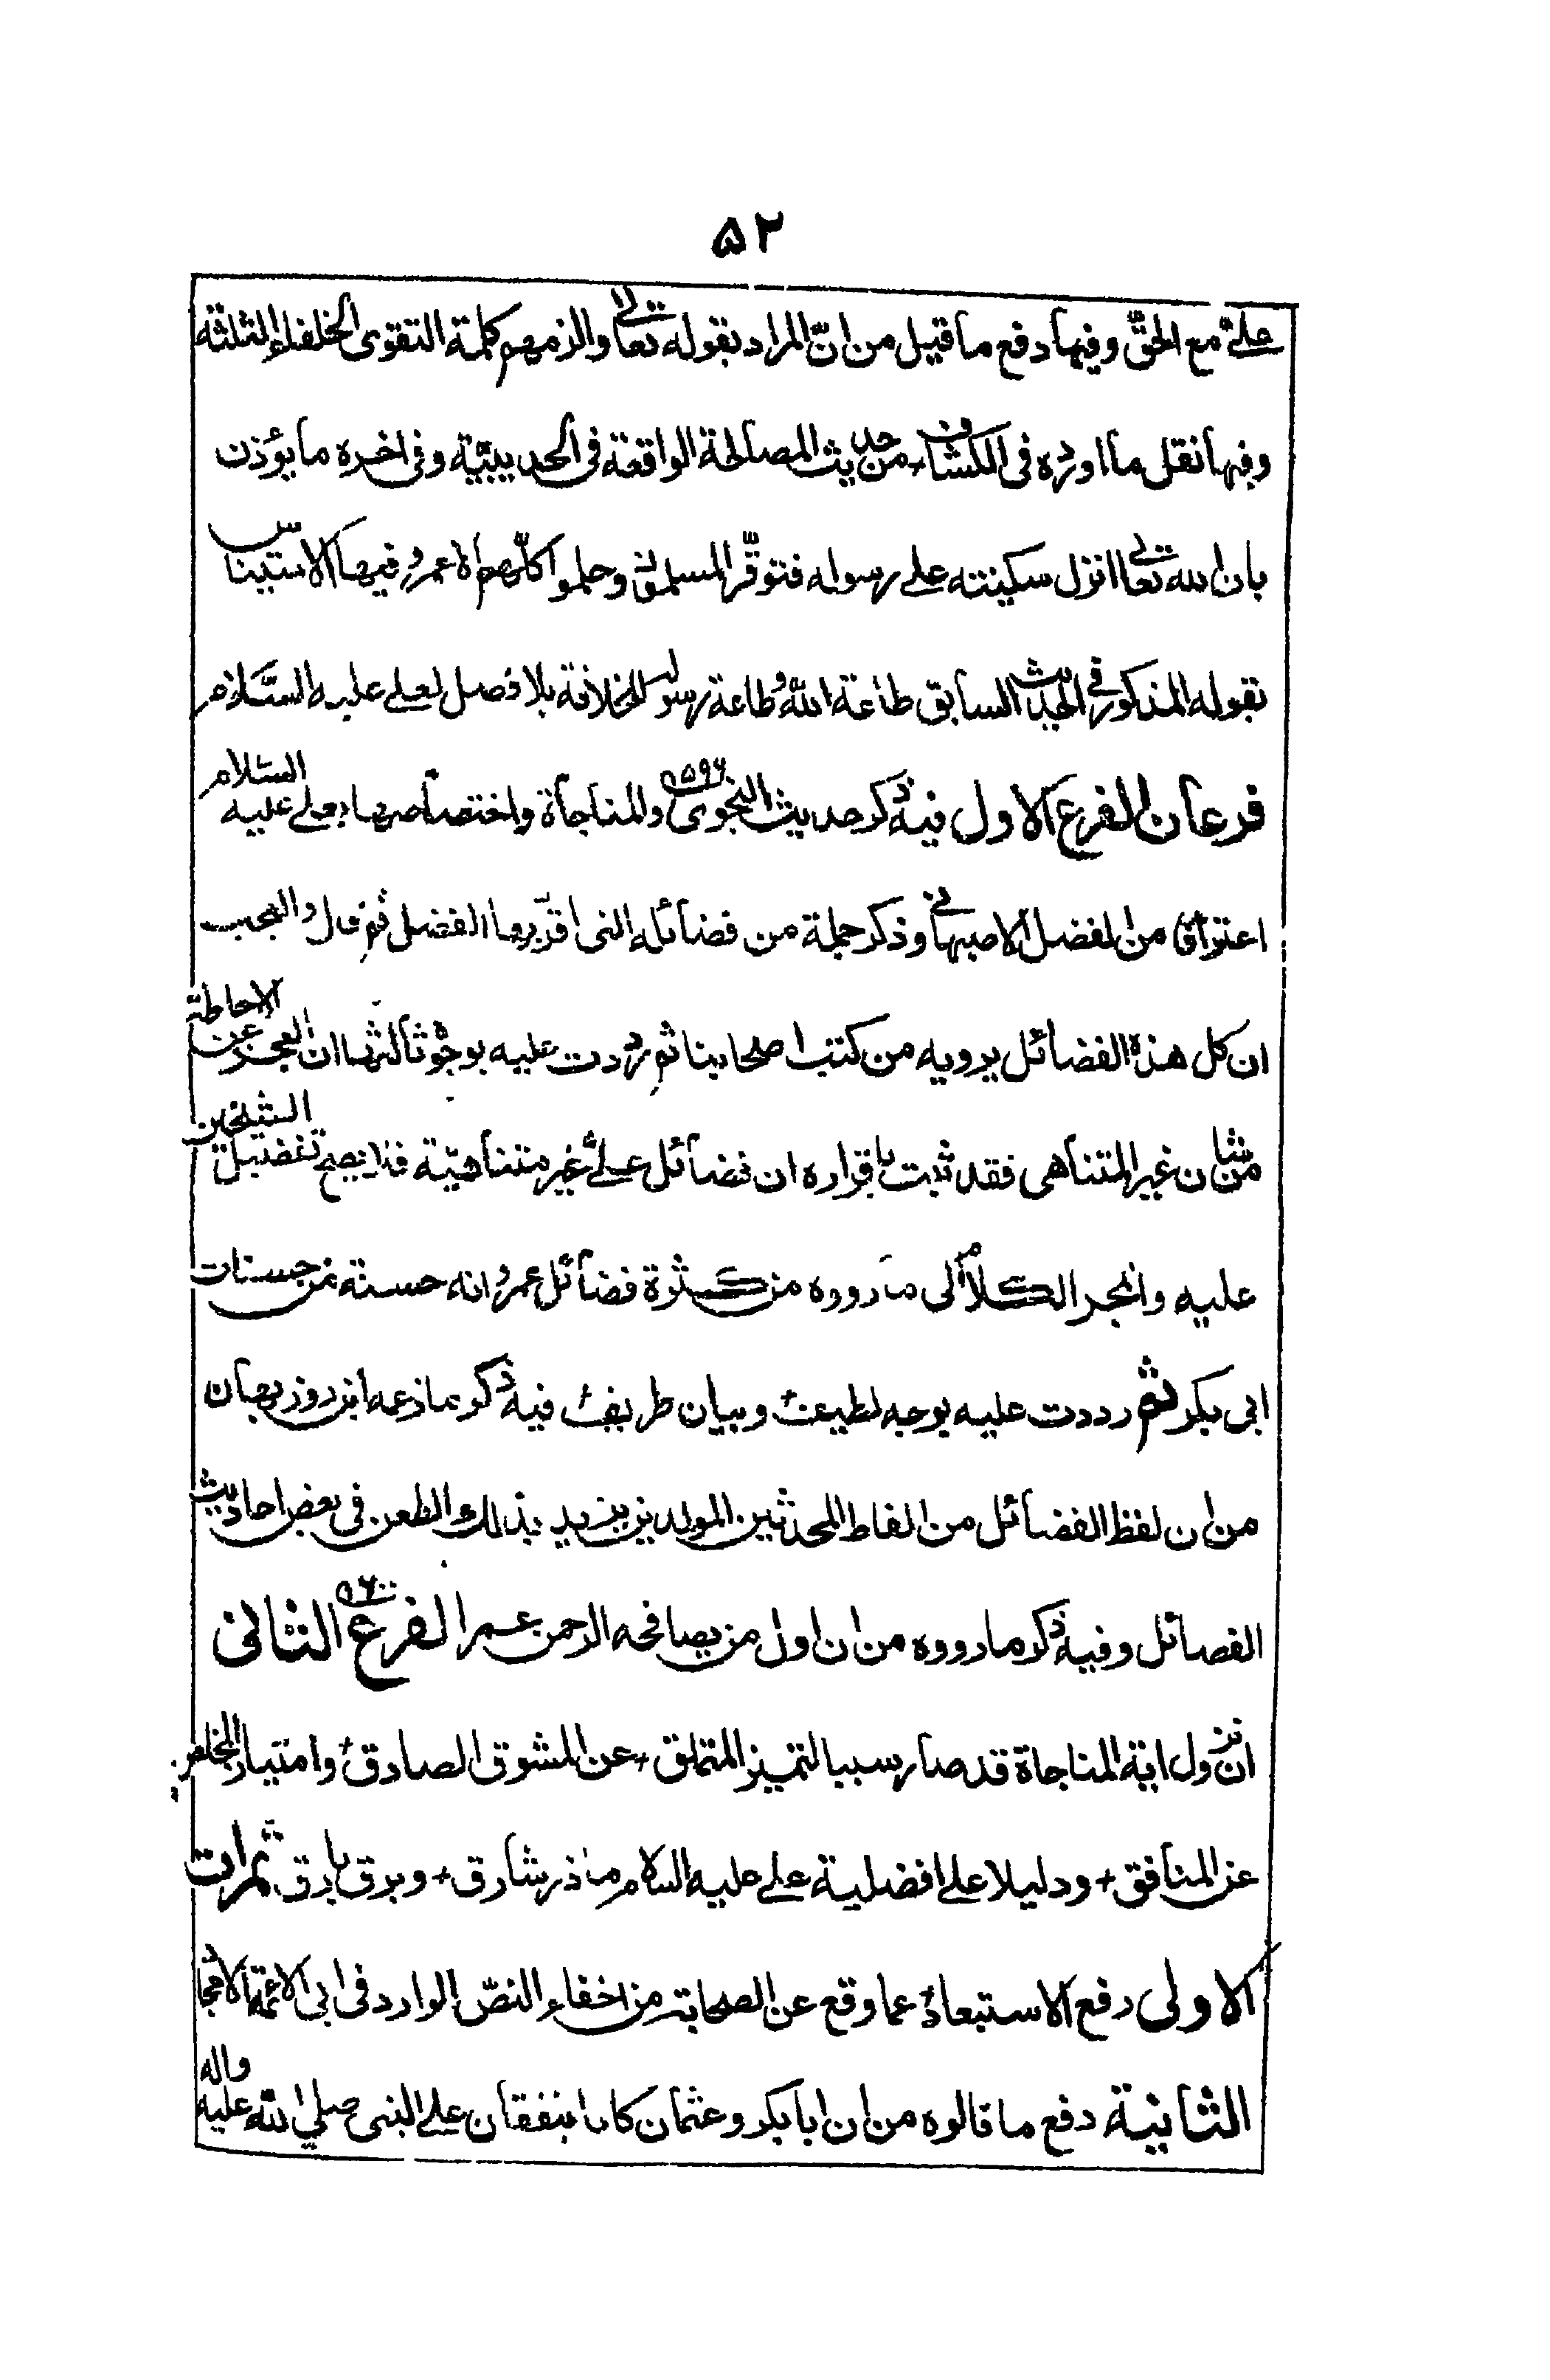 ۵۲
علي مع الحقّ وفيها دفع ما قيل من انّ المراد بقوله تعالى والزمهم كلمة التقوى الخلفاء الثلثة
وفيها نقل ما اورده في الكشاف من حديث المصالحة الواقعة في الحديبيّة وفي اخره ما يؤذن
بان الله تعالى انزل سكينته على رسوله فتوقّر المسلمون وحلموا كلّهم الا عمر وفيها الاستيناس
بقوله المذكور في الحديث السابق طاعة الله وطاعة رسوله للخلافة بلا فصل لعلي عليه السّلام
فرعان الفرع الاول فيه ذكر حديث النجوى ۵۹۶ والمناجاة واختصاصها بعلي عليه السّلام
اعتراف من الفضل الاصبهاني وذكر جملة من فضائله التي اقرّ بها الفضل ثم قال والعجب
ان كل هذه الفضائل يرويه من كتب اصحابنا ثم رددت عليه بوجوه ثالثها ان العجز عن الاحاطة
من شان غير المتناهي فقد ثبت باقراره ان فضائل علي غير متناهيّة فلا يصح تفضيل الشيخين
عليه وانجر الكلام الى ما رووه من كثرة فضائل عمر وانه حسنة من حسنات
ابي بكر ثم رددت عليه بوجه لطيف وبيان طريف فيه ذكر ما زعمه ابن روزبهان
من ان لفظ الفضائل من الفاظ المحدثين المولدين يريد بذلك الطعن في بعض احاديث
الفضائل وفيه ذكر ما رووه من ان اول من يصافحه الرحمن عمر الفرع ۶۰۰ الثاني
ان نزول اية المناجاة قد صار سببا لتميز المتملق + عن المشوق الصادق + وامتياز المخلص
عن المنافق + ودليلا على افضلية علي عليه السلام ما ذر شارق + وبرق بارق ثمرات
الاولى دفع الاستبعاد عما وقع عن الصحابة من اخفاء النصّ الوارد في ابي الائمة الامجاد
الثانية دفع ما قالوه من ان ابا بكر وعثمان كانا ينفقان على النبي صلي الله عليه واله